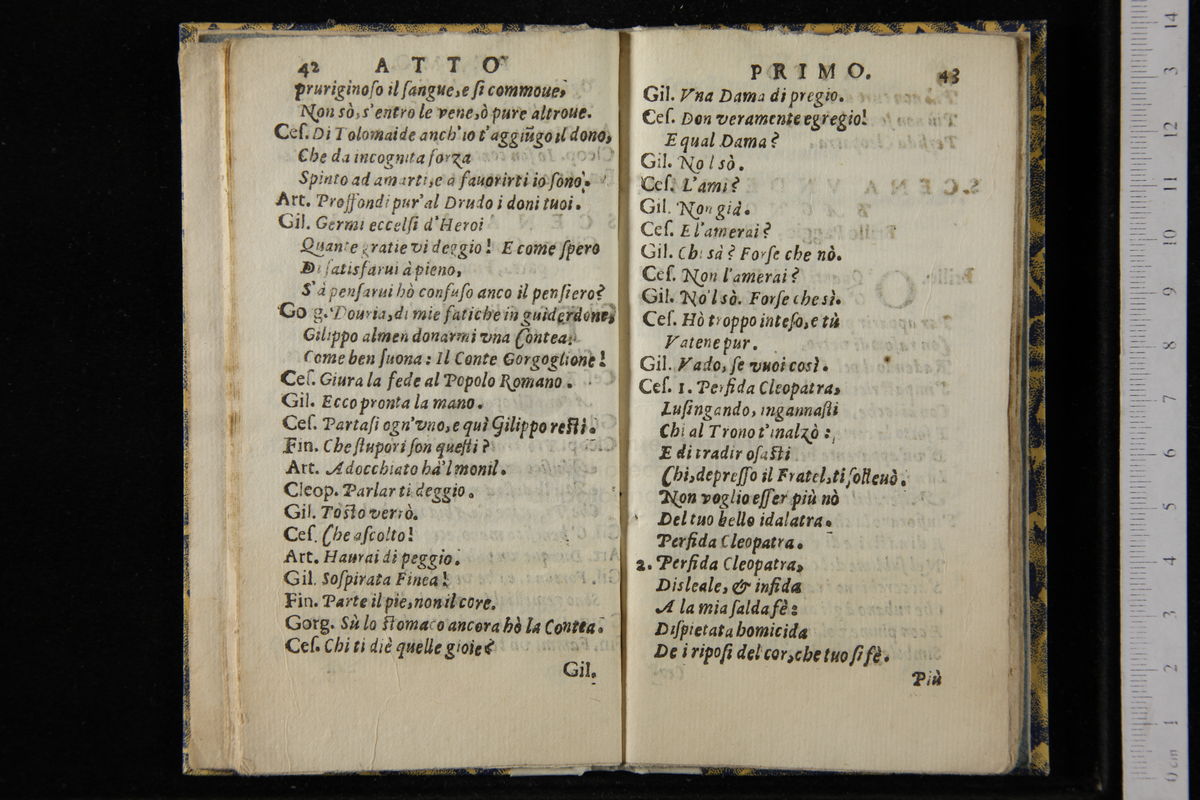 42 ATTO
pruriginoſo il ſangue, e ſi commoue,
Non sò, s'entro le vene, ò pure altroue.
Ceſ. Di Tolomaide anch'io t'aggiũgo il dono,
Che da incognita forza
Spinto ad amarti, e a fauorirti io ſono.
Art. Proffondi pur'al Drudo i doni tuoi.
Gil. Germi eccelſi d'Heroi
Quante gratie vi deggio! E come ſpero
Di ſatisfarui à pieno,
S'à penſarui hò confuſo anco il penſiero?
Go g. Douria, di mie fatiche in guiderdone,
Gilippo almen donarmi vna Contea.
Come ben ſuona: Il Conte Gorgoglione!
Ceſ. Giura la fede al Popolo Romano.
Gil. Ecco pronta la mano.
Ceſ. Partaſi ogn'vno, e quì Gilippo reſti.
Fin. Che ſtupori ſon queſti?
Art. Adocchiato hà'l monil.
Cleop. Parlar ti deggio.
Gil. Toſto verrò.
Ceſ. Che aſcolto!
Art. Haurai di peggio.
Gil. Soſpirata Finea!
Fin. Parte il pie, non il core.
Gorg. Sù lo ſtomaco ancora hò la Contea.
Ceſ. Chi ti diè quelle gioie?
Gil.
PRIMO. 43
Gil. Vna Dama di pregio.
Ceſ. Don veramente egregio!
E qual Dama?
Gil. No l sò.
Ceſ. L'ami?
Gil. Non già.
Ceſ. E l'amerai?
Gil. Chi sà? Forſe che nò.
Ceſ. Non l'amerai?
Gil. No'l sò. Forſe che sì.
Ceſ. Hò troppo inteſo, e tù
Vatene pur.
Gil. Vado, ſe vuoi così.
Ceſ. 1. Perfida Cleopatra,
Luſingando, ingannaſti
Chi al Trono t'inalzò:
E di tradir oſaſti
Chi, depreſſo il Fratel, ti ſolleuò.
Non voglio eſſer più nò
Del tuo bello idalatra.
Perfida Cleopatra.
2. Perfida Cleopatra,
Disleale, & infida
A la mia ſalda fè:
Diſpietata homicida
De i ripoſi del cor, che tuo ſi fè.
Più